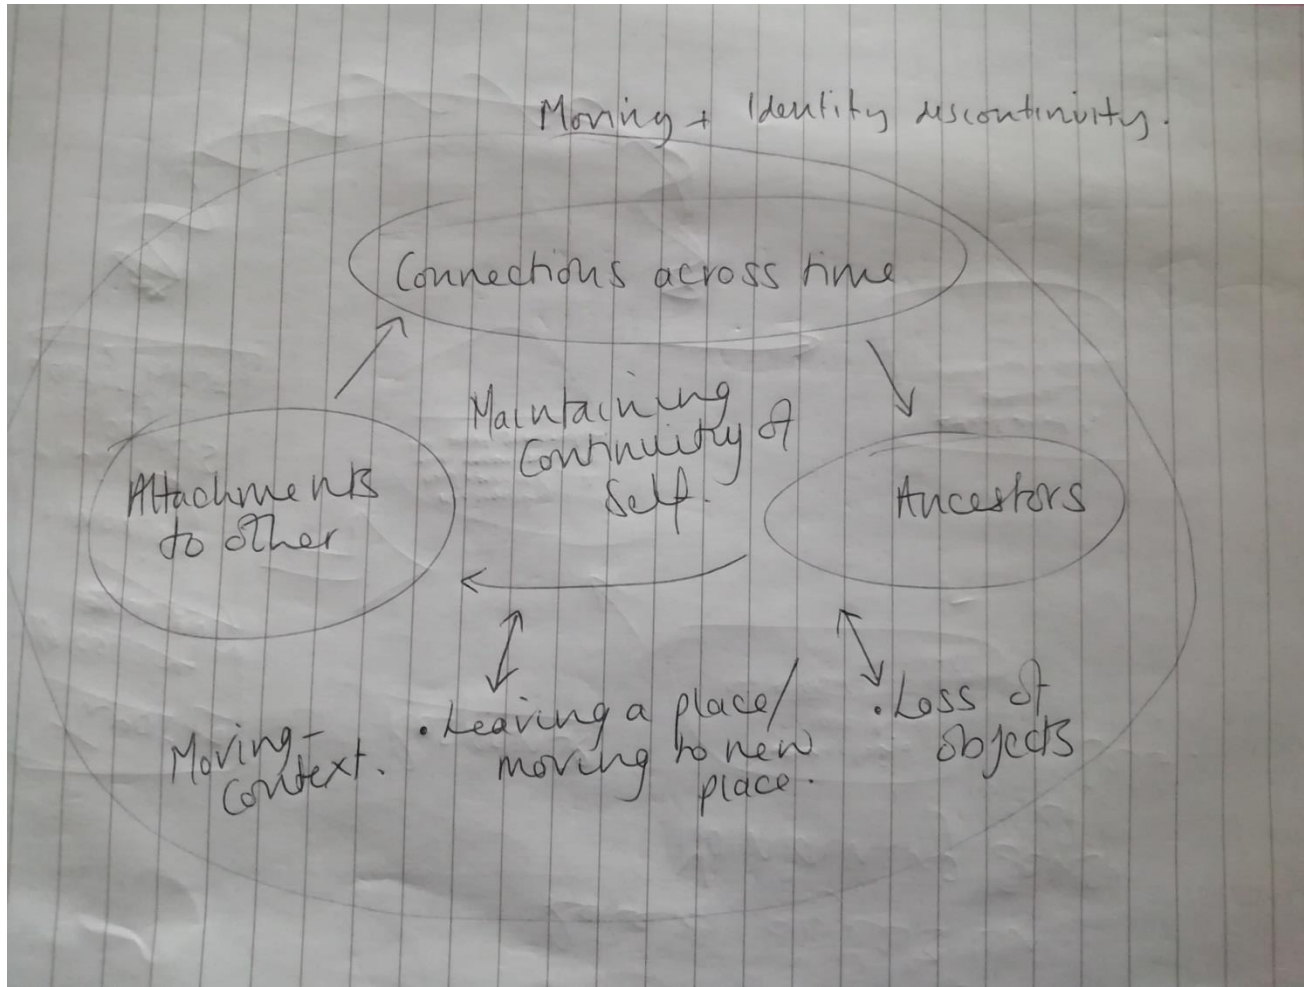 Moving + Identity discontinuity.
Connections across time
Maintaining
Continuity of
Self.
Attachments
to other
Ancestors
Moving-
Context.
• Leaving a place/
moving to new
place.
• Loss of
objects